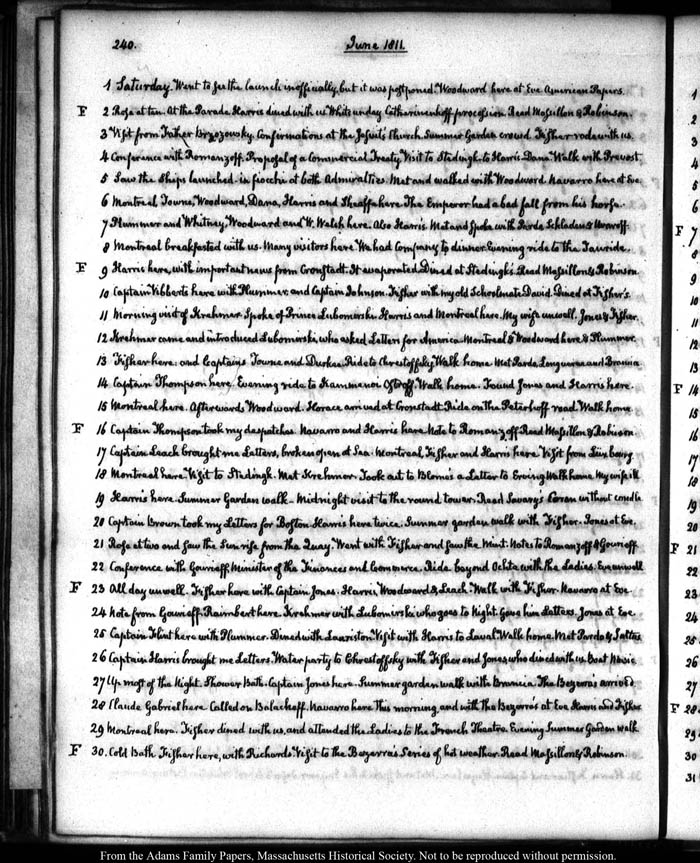 240. June 1811.
1 Saturday. Went to see the launch inofficially, but it was postponed. Woodward here at Eve. American Papers.
F 2 Rose at ten. At the Parade Harris dined with us Whitsunday Catherinenhoff procession. Read Massillon & Robinson.
3 Visit from Father Brzozowsky. Confirmations at the Jesuits Church. Summer Garden crowd. Fisher rode with us.
4 Conference with Romanzoff. Proposal of a Commercial Treaty. Visit to Stedingk. to Harris. Dana. Walk with Prevost.
5 Saw the Ships launched in fiocchi at both Admiralties. Met and walked with Woodward. Navarro here at Eve.
6 Montreal, Towne, Woodward, Dana, Harris and Sheaffe here. The Emperor had a bad fall from his horse.
7 Plummer and Whitney, Woodward and W. Welsh here. Also Harris. Met and spoke with Pardo, Schladen & Uwaroff.
8 Montreal breakfasted with us. Many visitors here. We had Company to dinner. Evening ride to the Tauride.
F 9 Harris here, with important news from Cronstadt. It evaporated. Dined at Stedingk's. Read Massillon & Robinson.
10 Captain Vibberts here with Plummer. and Captain Johnson. Fisher with my old Schoolmate David. Dined at Fisher's.
11 Morning visit of Krehmer. Spoke of Prince Lubomirski. Harris and Montreal here. My wife unwell. Jones & Fisher.
12 Krehmer came and introduced Lubomirski, who asked Letters for America. Montreal & Woodward here & Plummer.
13 Fisher here: and Captains Towne and Durkee. Ride to Chrestoffsky. Walk home. Met Pardo, Longuerue and Brancia
14 Captain Thompson here. Evening ride to Kammenoi Ostroff. Walk home. Found Jones and Harris here.
15 Montreal here. Afterwards Woodward. Horace arrived at Cronstadt. Ride on the Peterhoff road. Walk home.
F 16 Captain Thompson took my despatches. Navarro and Harris here. Note to Romanzoff. Read Massillon & Robinson
17 Captain Leach brought me Letters, broken open at Sea. Montreal, Fisher and Harris here. Visit from Luxbourg.
18 Montreal here. Visit to Stedingk. Met Krehmer. Took out to Blome's a Letter to Erving. Walk home. My wife ill
19 Harris here. Summer Garden walk. Midnight visit to the round tower. Read Savary's Coran without candle.
20 Captain Brown took my Letters for Boston. Harris here twice. Summer garden walk with Fisher. Jones at Eve.
21 Rose at two and saw the Sun rise from the Quay. Went with Fisher and saw the Mint. Notes to Romanzoff & Gourieff
22 Conference with Gourieff, Minister of the Finances and Commerce. Ride beyond Ochta with the Ladies. Eve unwell
F 23 All day unwell. Fisher here with Captain Jones. Harris, Woodward & Leach. Walk with Fisher. Navarro at Eve.
24 Note from Gourieff. Raimbert here. Krehmer with Lubomirski who goes to Night. Gave him Letters. Jones at Eve.
25 Captain Flint here with Plummer. Dined with Lauriston. Visit with Harris to Laval. Walk home. Met Pardo &
26 Captain Harris brought me Letters. Water party to Chrestoffsky with Fisher and Jones who dined with us. Boat Music
27 Up most of the Night. Shower Bath. Captain Jones here. Summer garden walk with Brancia. The Bezerra's arrived.
28 Claude Gabriel here. Called on Balacheff. Navarro here this morning and with the Bezerra's at Eve. Harris and Fisher
29 Montreal here. Fisher dined with us, and attended the Ladies to the French Theatre. Evening Summer Garden walk
F 30. Cold Bath. Fisher here, with Richards. Visit to the Bezerra's. Series of hot weather. Read Massillon & Robinson.
1
2
3
4
5
6
F 7
8
9
10
11
12
13
F 14
15
16
17
18
19
20
F 21
22
23
24
25
26
27
F 28
29
30
31
From the Adams Family Papers, Massachusetts Historical Society. Not to be reproduced without permission.